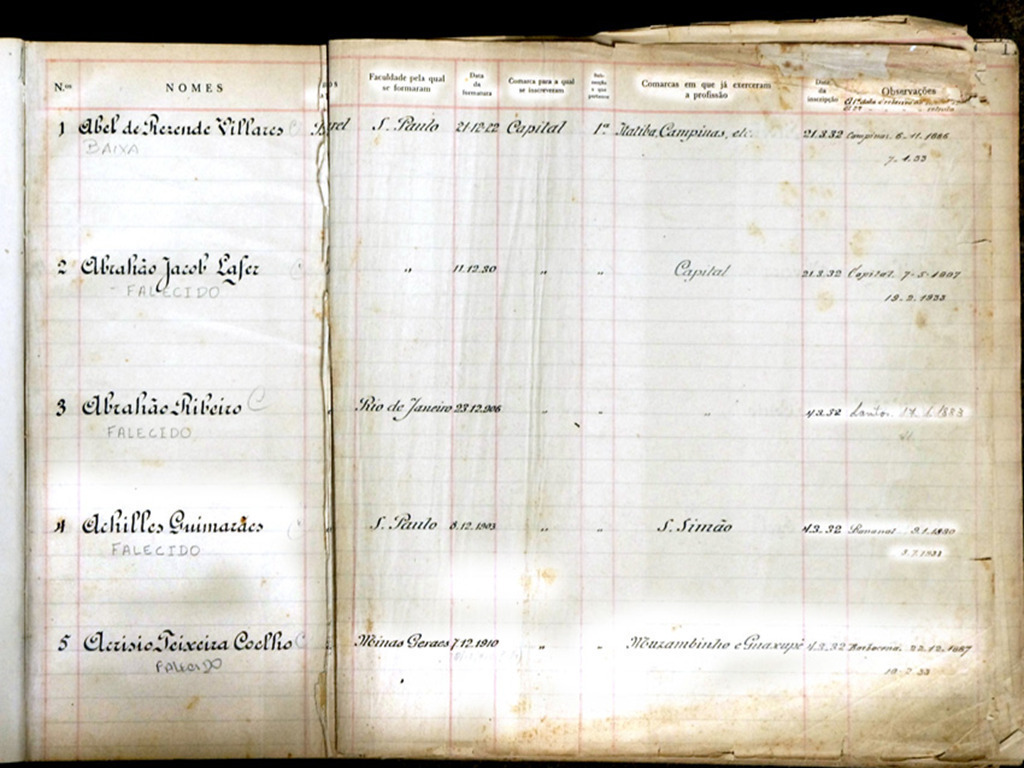 N.os NOMES Faculdade pela qual se formaram Data da formatura Comarca para a qual se inscreveram Sub-secção a que pertence Comarcas em que já exerceram a profissão Data da inscripção Observações
1 Abel de Rezende Villares S. Paulo 21-12-22 Capital 1ª Itatiba, Campinas, etc. 21.3.32 Campinas. 6-11-1886
BAIXA 7-1.33
2 Abrahão Jacob Lafer " 11.12.30 " " Capital 21.3.32 Capital. 7-5-1907
FALECIDO
3 Abrahão Ribeiro Rio de Janeiro 23.12.906 " " " 4.3.32 Santos.
FALECIDO
4 Achilles Guimarães S. Paulo 8.12.1903 " " S. Simão 4.3.32
FALECIDO
5 Acrisio Teixeira Coelho Minas Geraes 7.12.1910 " " Muzambinho e Guaxupé 4.3.32 Barbacena. 22-12-1887
FALECIDO